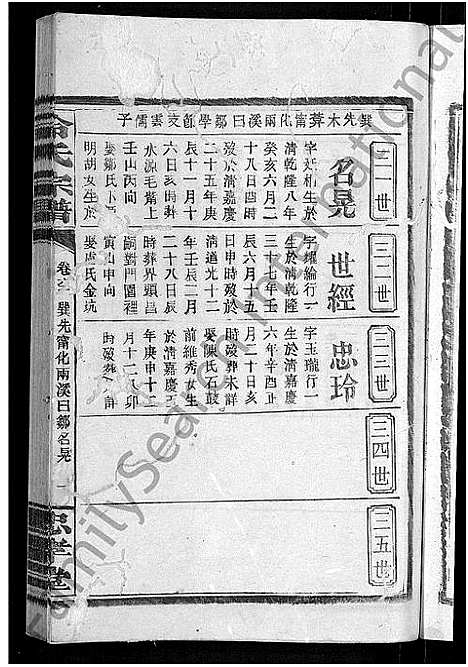 巽先木葬甯化兩溪曰鄒學節交雲儒子
三一世
名晃
字延相生於
清乾隆八年
癸亥六月二
十八日酉時
歿於清嘉慶
二十五年庚
辰十一月十
六日亥時葬
水源毛觜上
壬山丙向
娶鄒氏小
明胡女生於
三二世
世經
字耀綸行一
生於清乾隆
三十七年壬
辰六月十五
日申時歿於
清道光十二
年壬辰二月
二十八日辰
時葬界頭昌
嗣對門園裡
寅山申向
娶盧氏金坑
三三世
忠玲
字玉瑞行一
生於清嘉慶
六年辛酉正
月二十日亥
時歿葬未詳
娶陳氏石鼓
前維秀女生
於清嘉慶五
年庚申十二
月十二日卯
時歿葬
三四世
三五世
氏宗譜
卷之
巽先甯化兩溪曰鄒名晃
一
忠孝堂
FamilySearch International